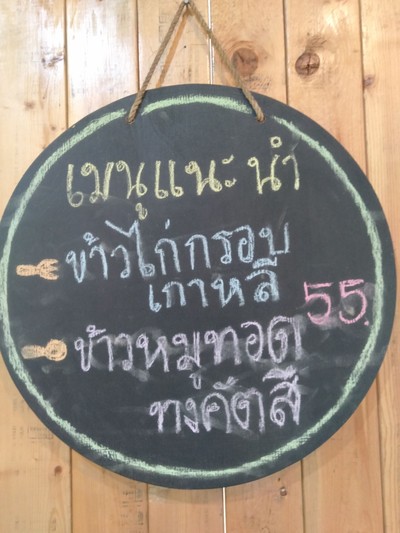 เมนูแนะนำ
ข้าวไก่กรอบ
เกาหลี
55.
ข้าวหมูทอด
ทงคัตสึ